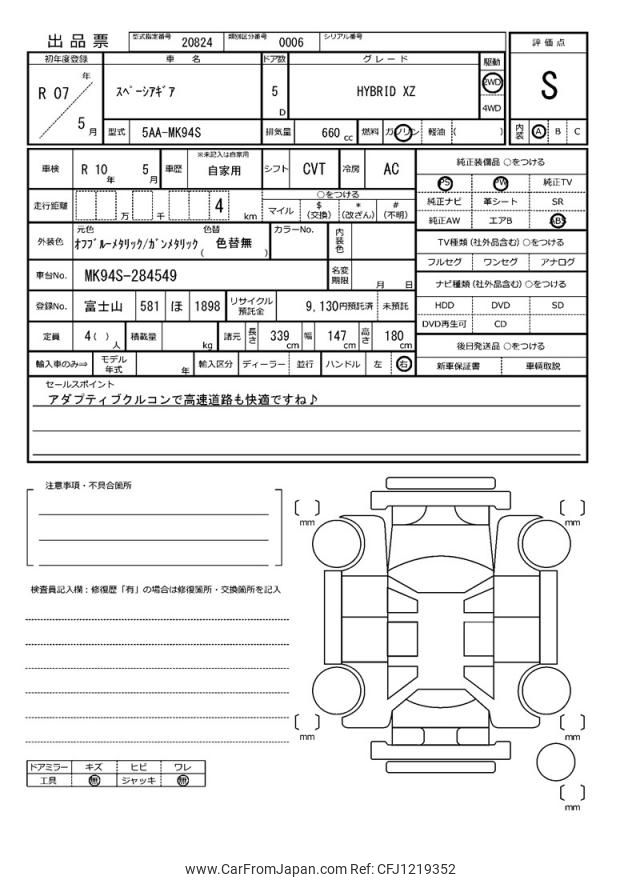 出品票 型式指定番号 20824 類別区分番号 0006 シリアル番号
初年度登録 車名 ドア数 グレード 駆動 評価点
R 07 年 5 月 スペーシアギア 5 D HYBRID XZ 2WD 4WD S
型式 5AA-MK94S 排気量 660 cc 燃料 ガソリン 軽油 ( ) 内装 A B C
車検 R 10 年 5 月 車歴 ※未記入は自家用 自家用 シフト CVT 冷房 AC
純正装備品 ○をつける
PS PW 純正TV
純正ナビ 革シート SR
純正AW エアB ABS
走行距離 万 千 4 km ○をつける
マイル $ (交換) * (改ざん) # (不明)
外装色 元色 色替 オフブルーメタリック/ガンメタリック ( 色替無 ) カラーNo. 内装色
TV種類 (社外品含む) ○をつける
フルセグ ワンセグ アナログ
車台No. MK94S-284549 名変期限 月 日
ナビ種類 (社外品含む) ○をつける
HDD DVD SD
DVD再生可 CD
登録No. 富士山 581 ほ 1898 リサイクル預託金 9,130円預託済 未預託
定員 4 ( ) 人 積載量 kg 諸元 長さ 339 cm 幅 147 cm 高さ 180 cm
後日発送品 ○をつける
新車保証書 車輌取説
輸入車のみ⇒ モデル年式 年 輸入区分 ディーラー 並行 ハンドル 左 右
セールスポイント
アダプティブクルコンで高速道路も快適ですね♪
注意事項・不具合箇所
検査員記入欄：修復歴「有」の場合は修復箇所・交換箇所を記入
mm
mm
mm
mm
mm
ドアミラー キズ ヒビ ワレ
工具 無 ジャッキ 無
www.CarFromJapan.com Ref: CFJ1219352